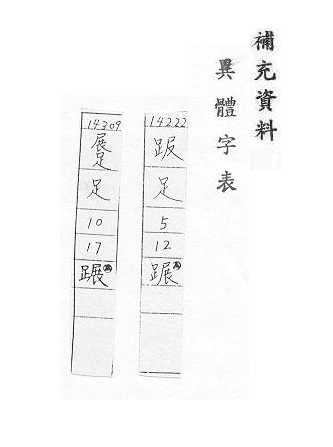 補充資料
異體字表
14222
足
5
12
蹍
14309
足
10
17
蹍